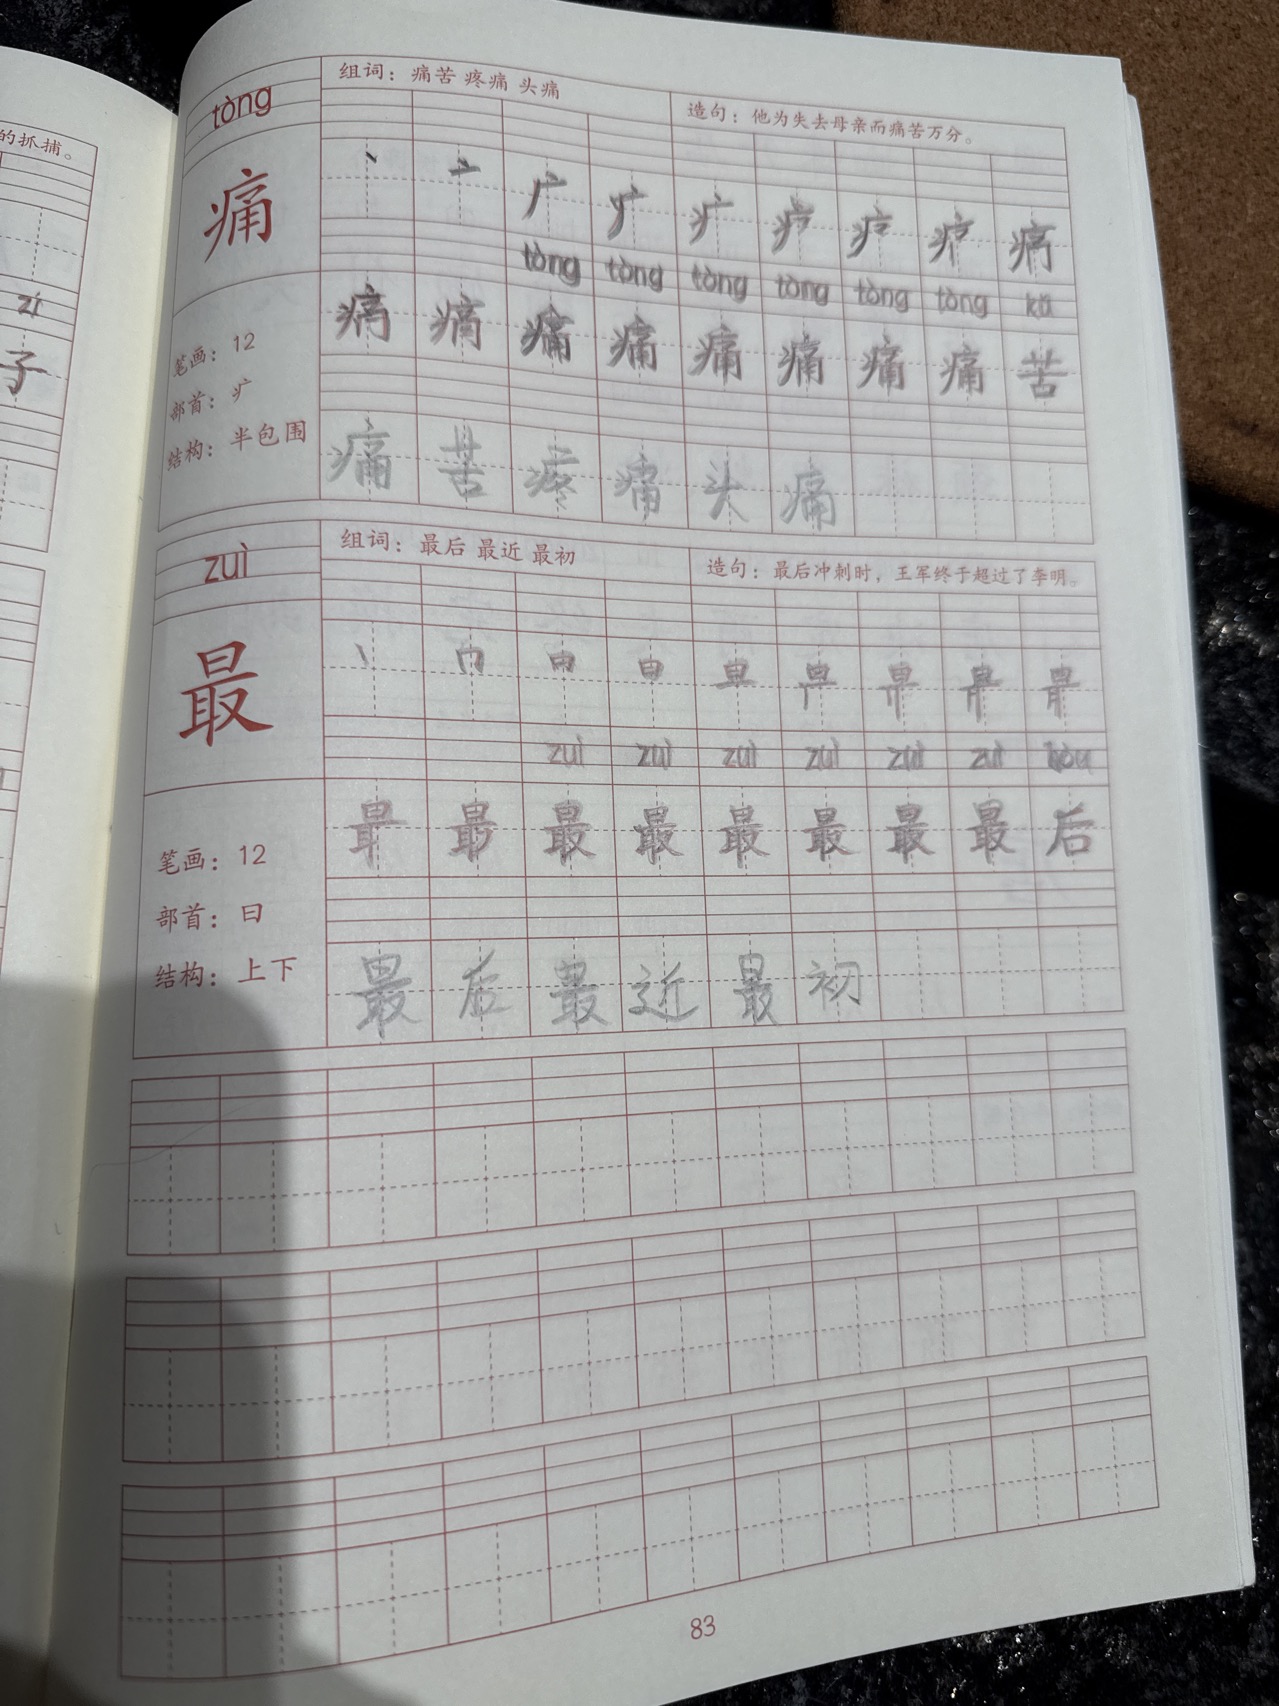 的抓捕。
zí
子
tòng
组词：痛苦 疼痛 头痛
造句：他为失去母亲而痛苦万分。
痛
tòng tòng tòng tòng tòng tòng kǔ
痛 痛 痛 痛 痛 痛 苦
笔画：12
部首：疒
结构：半包围
痛 苦 疼 痛 头 痛
zuì
组词：最后 最近 最初
造句：最后冲刺时，王军终于超过了李明。
最
zuì zuì zuì zuì zuì zuì hòu
最 最 最 最 最 最 后
笔画：12
部首：曰
结构：上下
最 后 最 近 最 初
83